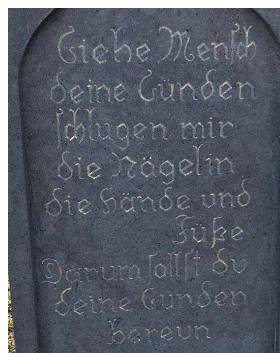 Siehe Mensch
deine Sünden
schlugen mir
die Nägel in
die Hände und
Füße
Darum sollst du
deine Sünden
bereun